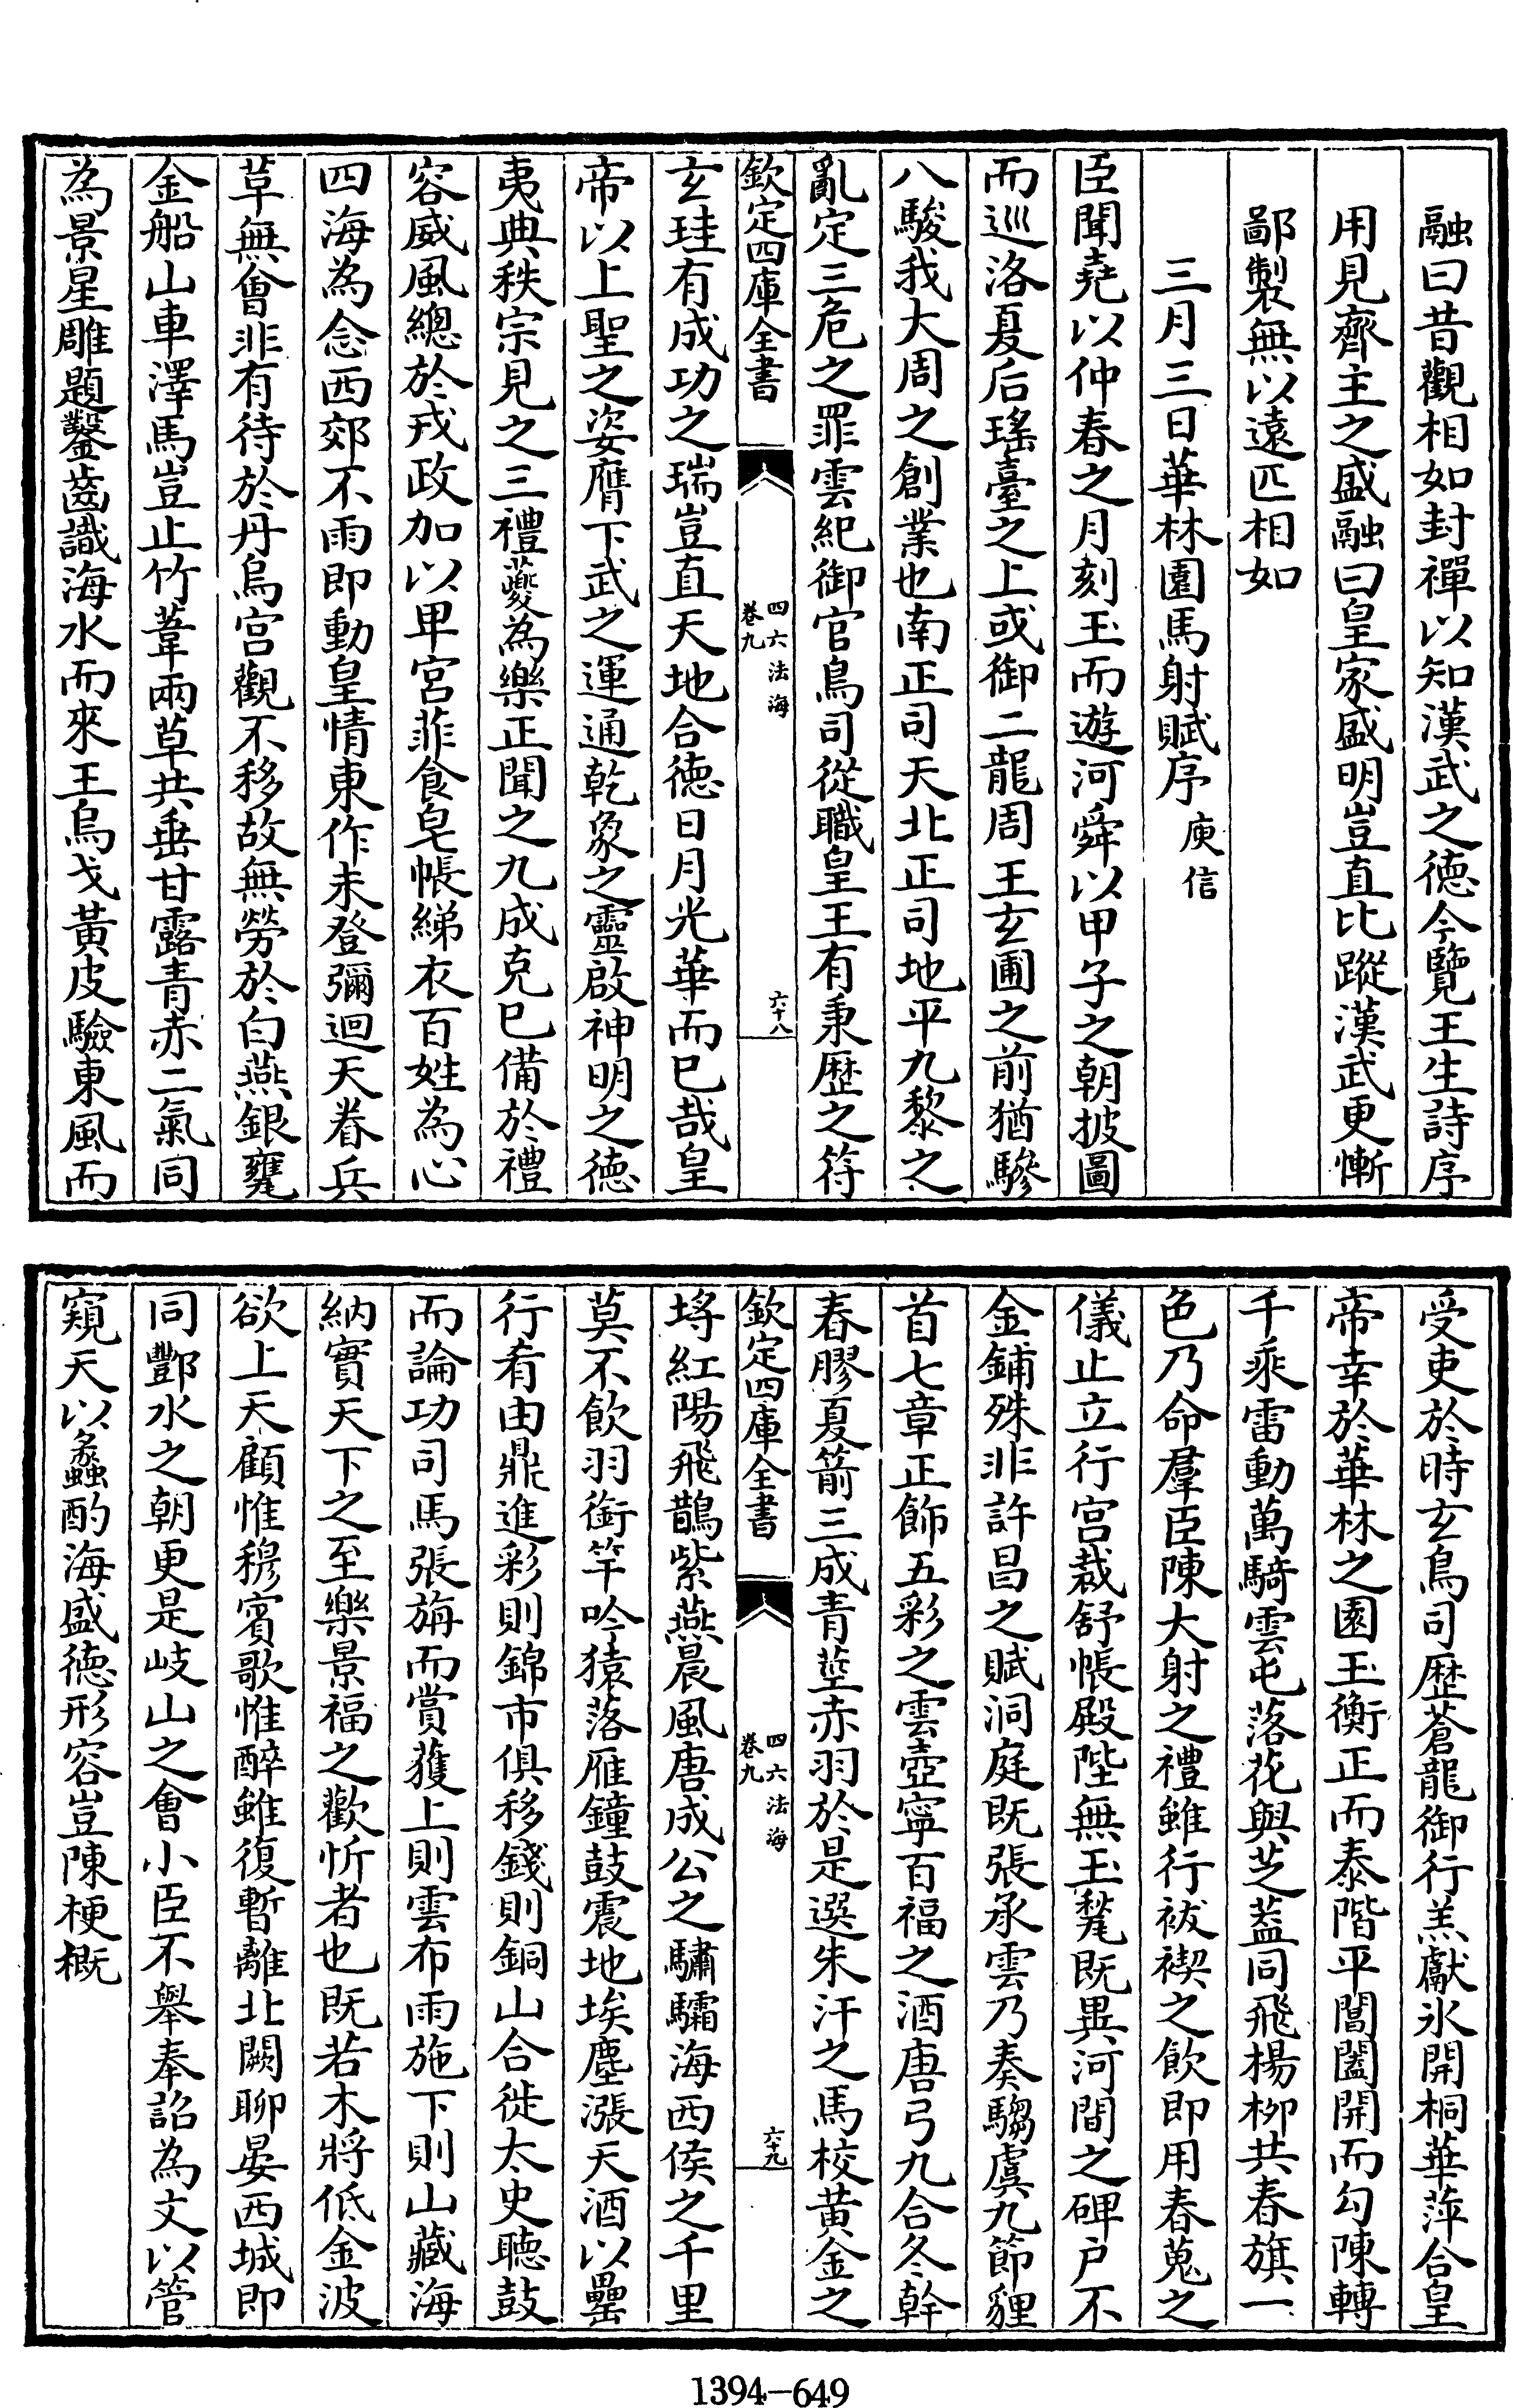 融曰昔觀相如封禪以知漢武之德今覽王生詩序
用見齊主之盛融曰皇家盛明豈直比蹤漢武更慚
鄙製無以遠匹相如
三月三日華林園馬射賦序 庾信
臣聞堯以仲春之月刻玉而遊河舜以甲子之朝披圖
而巡洛夏后瑤臺之上或御二龍周王玄圃之前猶驂
八駿我大周之創業也南正司天北正司地平九黎之
亂定三危之罪雲紀御官鳥司從職皇王有秉歷之符
欽定四庫全書
四六法海
卷九
六十八
玄珪有成功之瑞豈直天地合德日月光華而已哉皇
帝以上聖之姿膺下武之運通乾象之靈啟神明之德
夷典秩宗見之三禮夔為樂正聞之九成克已備於禮
容威風總於戎政加以卑宮菲食皂帳綈衣百姓為心
四海為念西郊不雨即動皇情東作未登彌迴天眷兵
草無會非有待於丹烏宮觀不移故無勞於白燕銀甕
金船山車澤馬豈止竹葦兩草共垂甘露青赤二氣同
為景星雕題鑿齒識海水而來王烏弋黃皮驗東風而
受吏於時玄鳥司歷蒼龍御行羔獻冰開桐華萍合皇
帝幸於華林之園玉衡正而泰階平閶闔開而勾陳轉
千乘雷動萬騎雲屯落花與芝蓋同飛楊柳共春旗一
色乃命羣臣陳大射之禮雖行祓禊之飲即用春蒐之
儀止立行宮裁舒帳殿陛無玉甃既異河間之碑戶不
金鋪殊非許昌之賦洞庭既張承雲乃奏騶虞九節貍
首七章正飾五彩之雲壺寧百福之酒唐弓九合冬幹
春膠夏箭三成青莖赤羽於是選朱汗之馬校黃金之
欽定四庫全書
四六法海
卷九
六十九
埒紅陽飛鵲紫燕晨風唐成公之驌驦海西侯之千里
莫不飲羽銜竿吟猿落雁鐘鼓震地埃塵漲天酒以罍
行肴由鼎進彩則錦市俱移錢則銅山合徙太史聽鼓
而論功司馬張旃而賞獲上則雲布雨施下則山藏海
納實天下之至樂景福之歡忻者也既若木將低金波
欲上天顧惟穆賓歌惟醉雖復暫離北闕聊晏西城即
同酆水之朝更是岐山之會小臣不舉奉詔為文以管
窺天以蠡酌海盛德形容豈陳梗概
1394-649